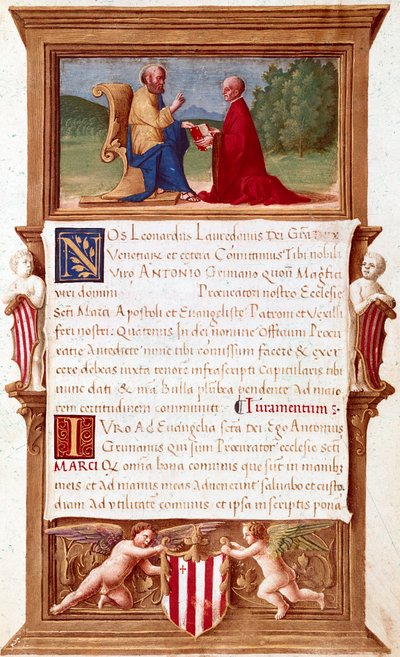 NOS Leonardus Lauredanus Dei Gra Dux
Venetiar et cetera Comittimus Tibi nobili
Viro ANTONIO Grimano quon Magfici
viri domini Procuratori nostro Ecclesie
Scti Marci Apostoli et Evangeliste Patroni et Vexilli
feri nostri: Quatenus In dei nomine Officium Procu
ratie Antedicte nunc tibi comissum facere & exer
cere debeas iuxta tenore infrascripti Capitularis tibi
nunc dati & nra Bulla plubea pendente Ad maio
rem certitudinem communiti: Iuramentum :
IVRO Ad Evangelia scta Dei Ego Antonius
Grimanus qui sum Procurator ecclesie Scti
MARCI Q omia bona comunis que sut in manib
meis et ad manus meas advenerint salvabo et custo
diam ad utilitate comunis et ipsa in scriptis pona